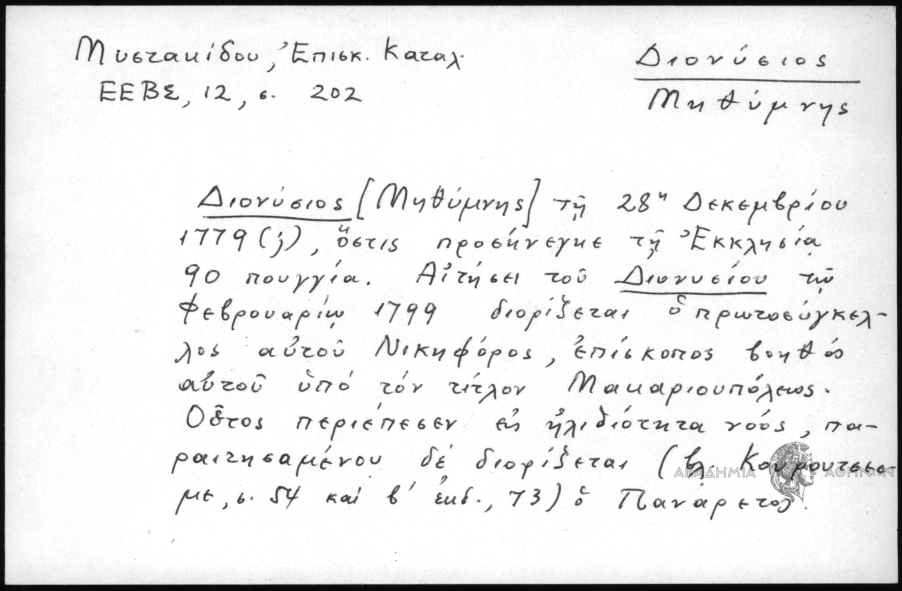 Μυστακίδου, Ἐπισκ. Καταλ.
ΕΕΒΣ, 12, σ. 202
Διονύσιος
Μηθύμνης
Διονύσιος [Μηθύμνης] τῇ 28ῃ Δεκεμβρίου
1779 (j), ὅστις προσήνεγκε τῇ Ἐκκλησίᾳ
90 πουγγία. Αἰτήσει τοῦ Διονυσίου τῷ
Φεβρουαρίῳ 1799 διορίζεται ὁ πρωτοσύγκελ-
λος αὐτοῦ Νικηφόρος, ἐπίσκοπος βοηθός
αὐτοῦ ὑπό τόν τίτλον Μακαριουπόλεως.
Οὗτος περιέπεσεν εἰς ἠλιθιότητα νοός, πα-
ραιτησαμένου δέ διορίζεται (βλ.
με, σ. 54 καί β' ἐκδ., 73) ὁ Πανάρετος
ΑΚΑΔΗΜΙΑ ΑΘΗΝΩΝ